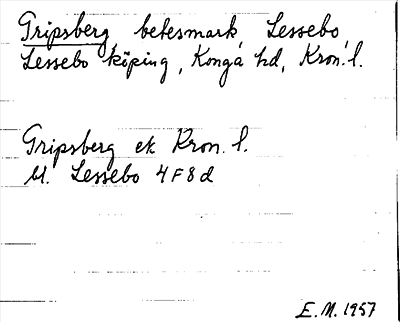 Gripsberg, betesmark, Lessebo,
Lessebo köping, Konga hd, Kron. l.
Gripsberg ek Kron. l.
bl. Lessebo 4F8d
E.M. 1957